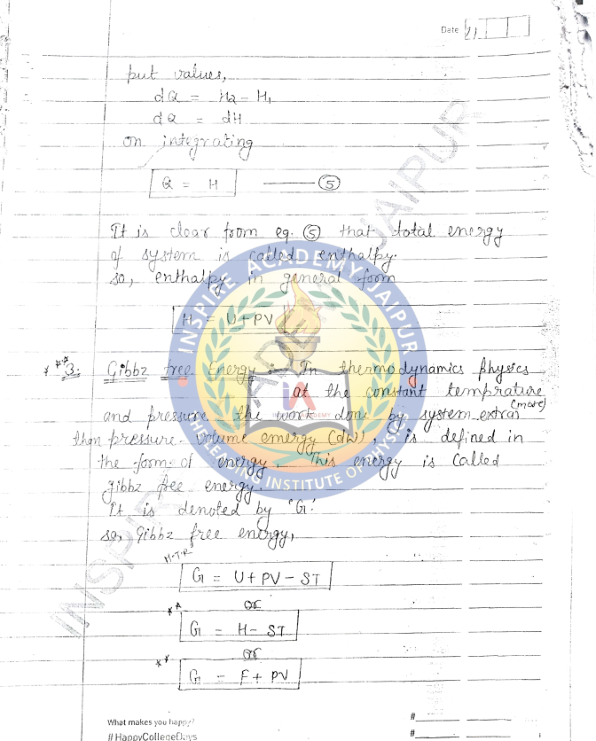 Date 21
put values,
dQ = H2 - H1
dQ = dH
on integrating
Q = H ——— (5)
It is clear from eq. (5) that total energy
of system is called enthalpy.
so, enthalpy in general form
H = U + PV
*** 3. Gibbz free Energy - In thermodynamics physics
at the constant temprature
(more)
and pressure the work done by system extras
than pressure. volume energy (dw), is defined in
the form of energy. This energy is called
gibbz free energy.
It is denoted by 'G'.
so, gibbz free energy,
H-T-R
G = U + PV - ST
or
** G = H - ST
or
** G = F + PV
What makes you happy?
# HappyCollegeDays
#
#
INSPIRE ACADEMY JAIPUR
INSTITUTE OF PHYSICS
JAIPUR
INSPIR